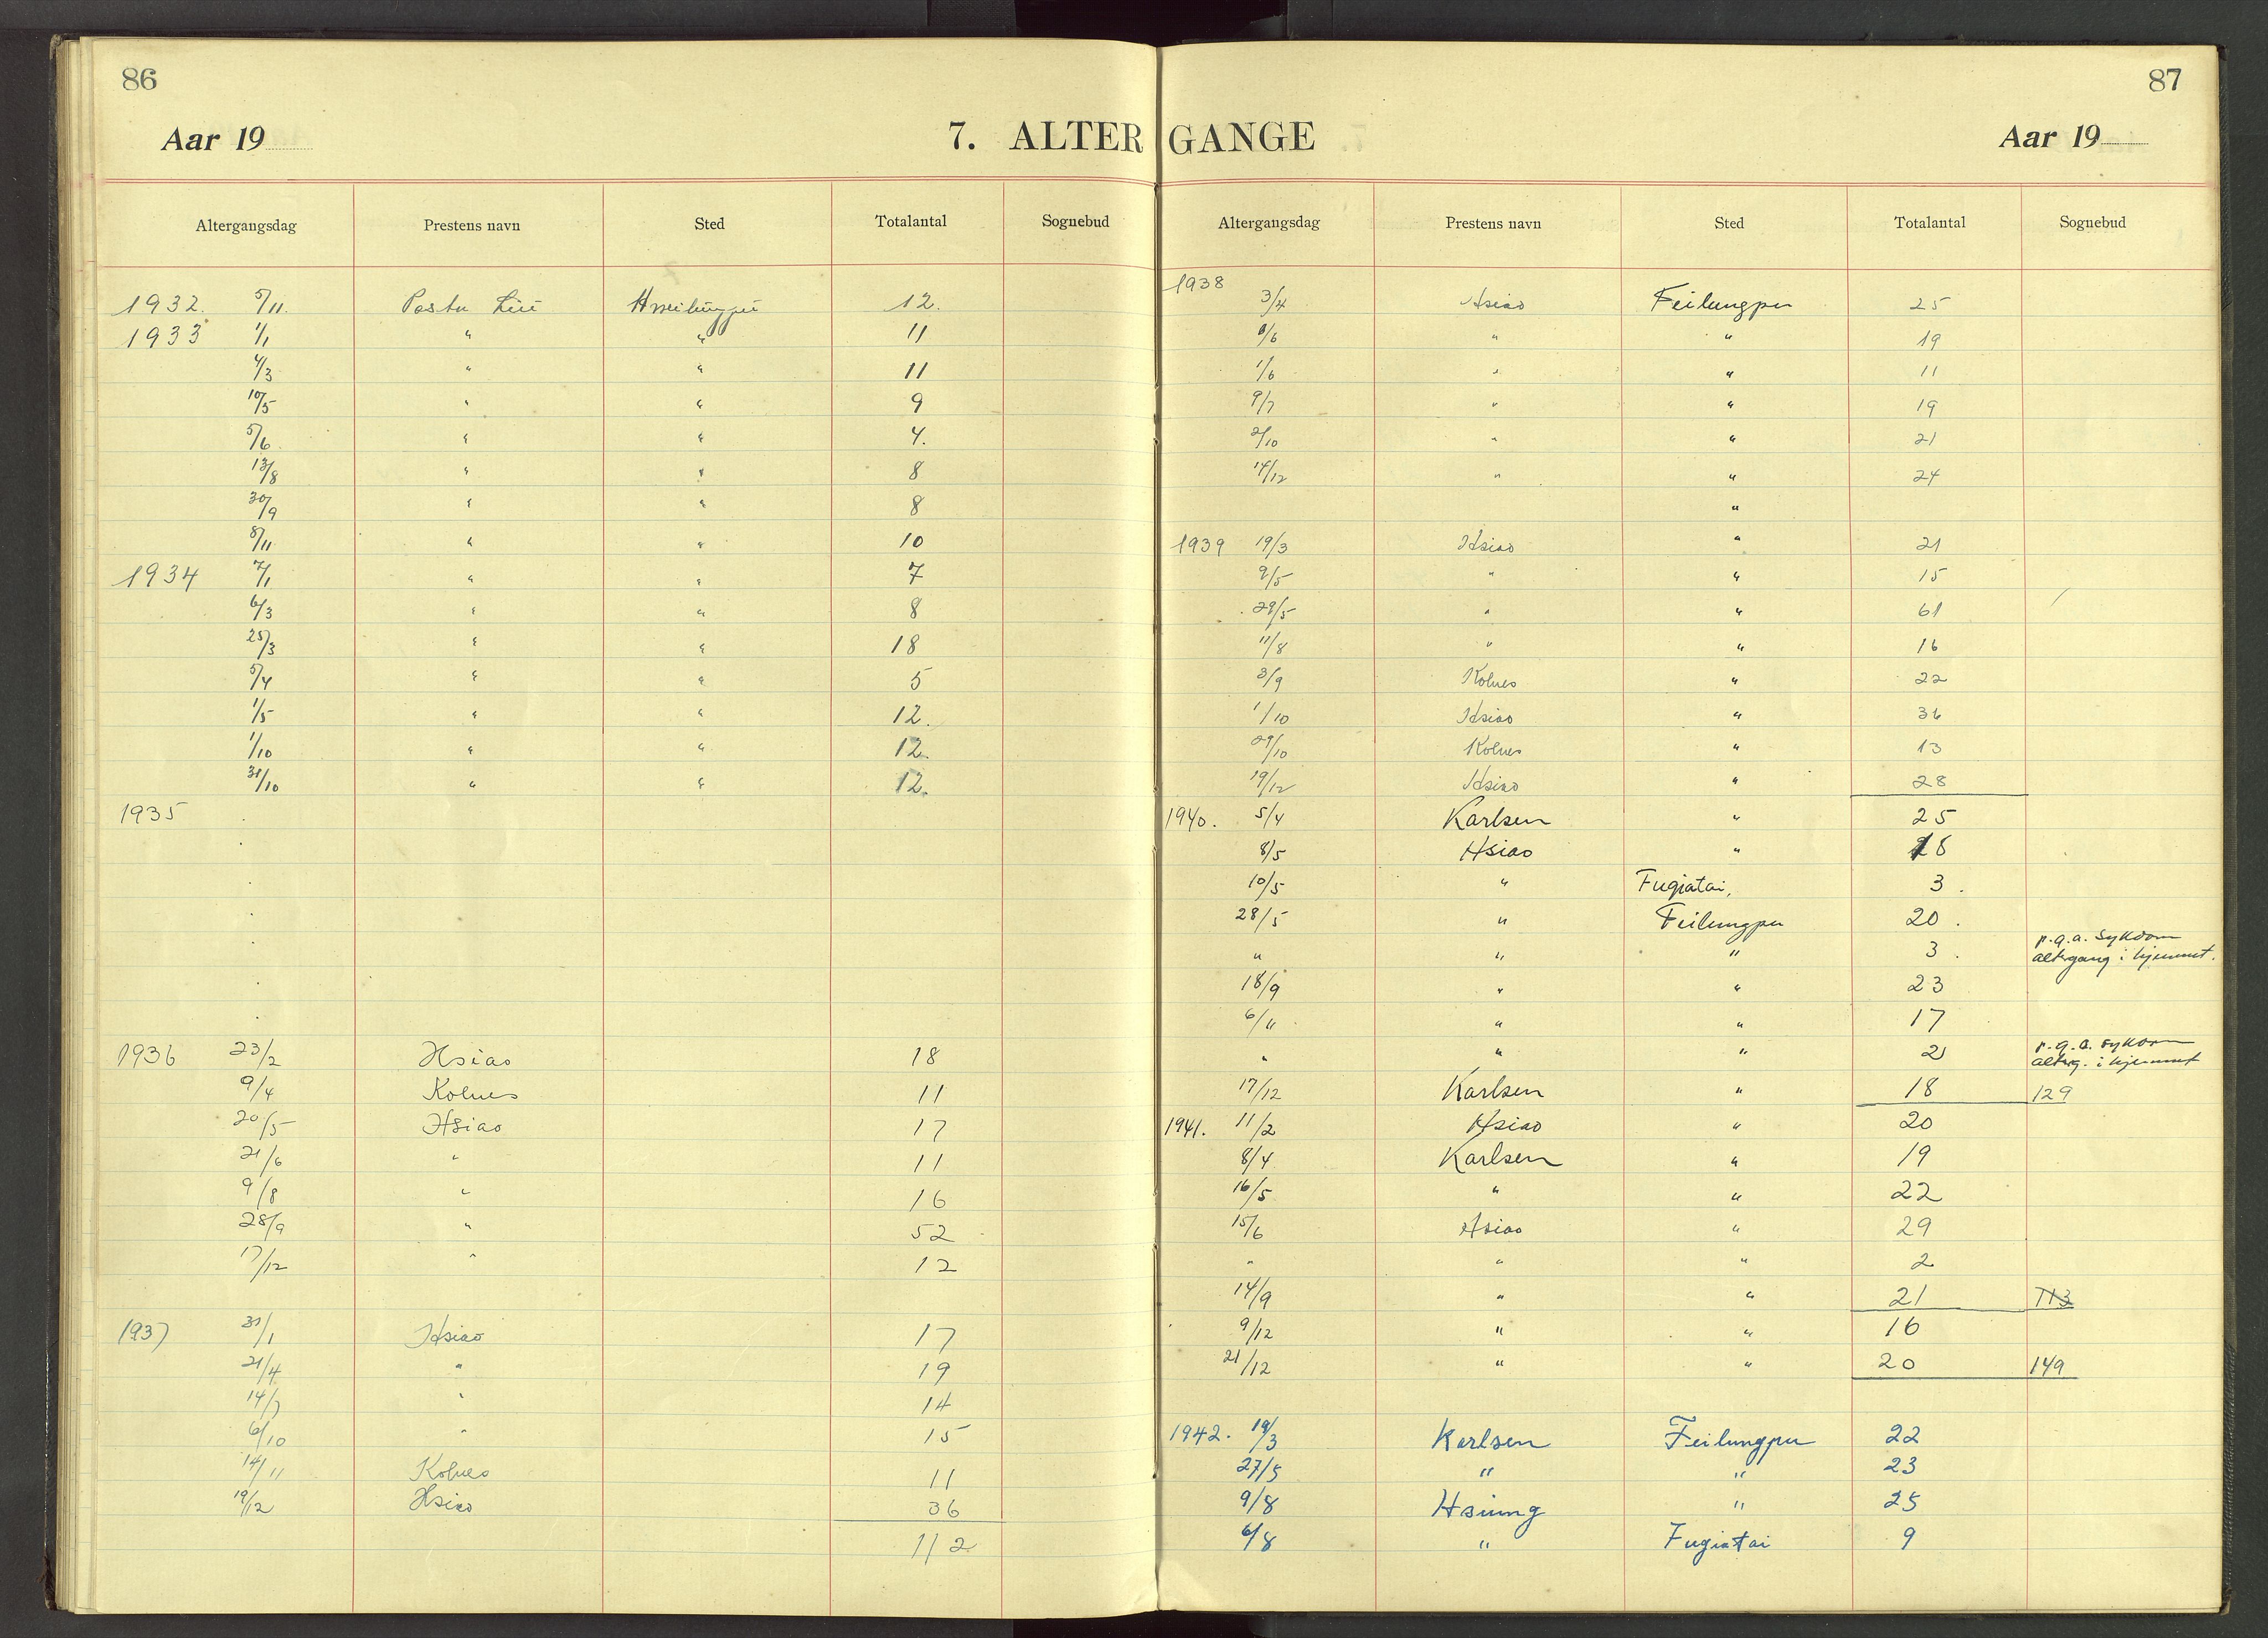 86
Aar 19
7. ALTER
Altergangsdag Prestens navn Sted Totalantal Sognebud
1932. 5/11. Pastor Liu 12.
1933 1/1 " " 11
4/3 " " 11
10/5 " " 9
5/6 " " 4.
13/8 " " 8
30/9 " " 8
8/11 " " 10
1934 7/1 " " 7
6/3 " " 8
25/3 " " 18
5/4 " " 5
1/5 " " 12.
1/10 " " 12.
31/10 " " 12.
1935
1936 23/2 Hsiao 18
9/4 Kolnes 11
20/5 Hsiao 17
21/6 " 11
9/8 " 16
28/9 " 52
17/12 " 12
1937 31/1 Hsiao 17
21/4 " 19
14/7 " 14
6/10 " 15
14/11 Kolnes 11
19/12 Hsiao 36
112
87
GANGE
Aar 19
Altergangsdag Prestens navn Sted Totalantal Sognebud
1938
3/4 Hsiao Feilungpu 25
/6 " " 19
1/6 " " 11
9/7 " " 19
2/10 " " 21
14/12 " " 24
"
1939 19/3 Hsiao " 21
9/5 " " 15
29/5 " " 61
11/8 " " 16
3/9 Kolnes " 22
1/10 Hsiao " 36
29/10 Kolnes " 13
19/12 Hsiao " 28
1940. 5/4 Karlsen " 25
8/5 Hsiao " 18
10/5 " Fugiatai, 3.
28/5 " Feilungpu 20.
" " " 3. p.g.a. sykdom
altergang i hjemmet.
18/9 " " 23
6/11 " " 17
" " " 2 p.g.a. sykdom
alterg. i hjemmet
17/12 Karlsen " 18 129
1941. 11/2 Hsiao " 20
8/4 Karlsen " 19
16/5 " " 22
15/6 Hsiao " 29
" " " 2
14/9 " " 21 113
9/12 " " 16
21/12 " " 20 149
1942. 19/3 Karlsen Feilungpu 22
27/5 " " 23
9/8 Hsiung " 25
6/8 " Fugiatai 9